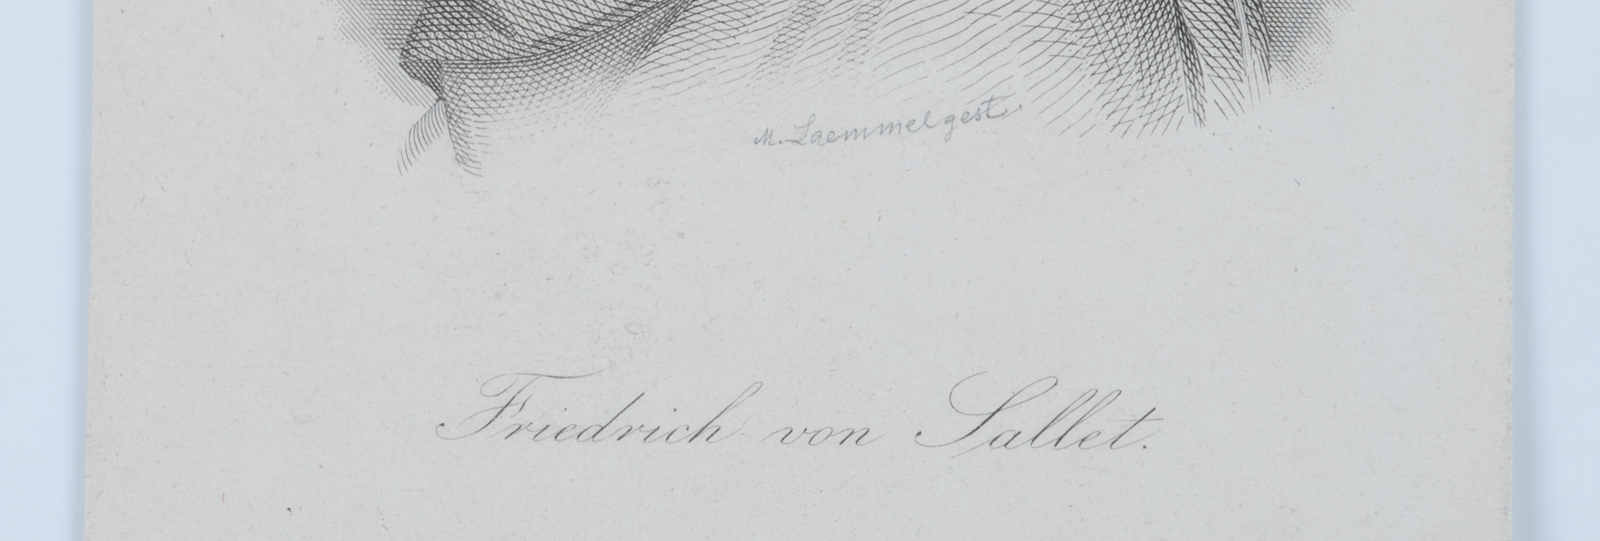 M. Laemmel gest.
Friedrich von Sallet.